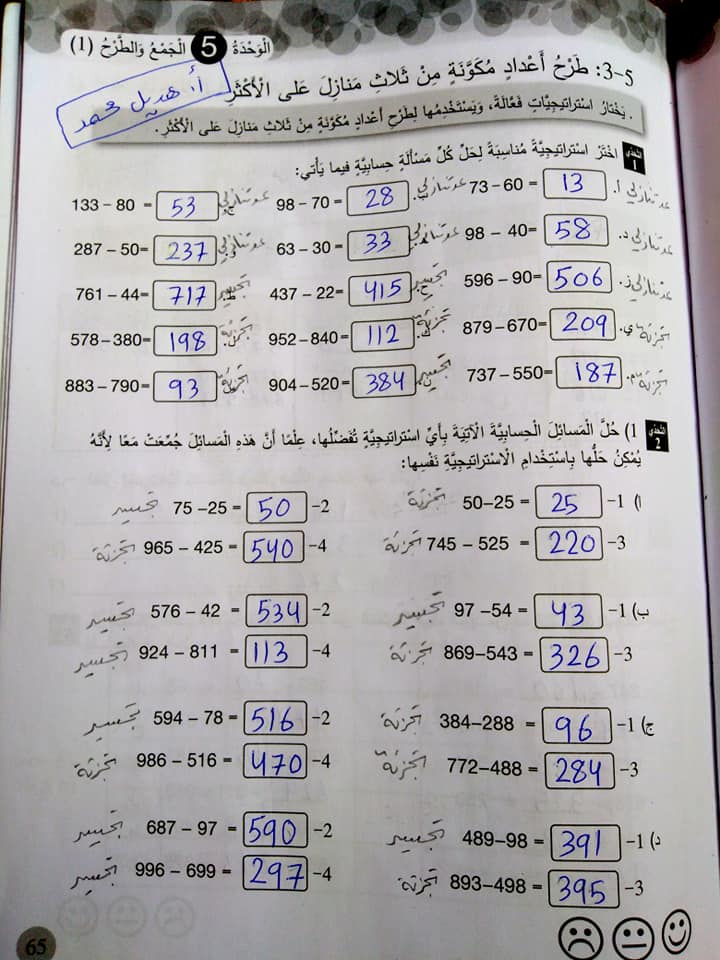 الْوَحْدَةُ 5 الْجَمْعُ وَالطَّرْحُ (1)
3-5: طَرْحُ أَعْدادٍ مُكَوَّنَةٍ مِنْ ثَلاثِ مَنازِلَ عَلى الْأَكْثَرِ
أ. هديل محمد
. يَخْتارُ اسْتراتيجِيّاتٍ فَعّالَةً، وَيَسْتَخْدِمُها لِطَرْحِ أَعْدادٍ مُكَوَّنَةٍ مِنْ ثَلاثِ مَنازِلَ عَلى الْأَكْثَرِ.
التَّحَدّي 1 اخْتَرْ اسْتراتيجِيَّةً مُناسِبَةً لِحَلِّ كُلِّ مَسْأَلَةٍ حِسابِيَّةٍ فيما يَأْتي:
أ. عد تنازلي 73 – 60 = 13 عد تنازلي 98 – 70 = 28 عد تنازلي 133 – 80 = 53
د. عد تنازلي 98 – 40= 58 عد تنازلي 63 – 30 = 33 عد تنازلي 287 – 50= 237
ز. عد تنازلي 596 – 90= 506 التجسير 437 – 22= 415 التجسير 761 – 44= 717
ي. التجزئة 879 – 670= 209 التجزئة 952 – 840= 112 التجزئة 578 – 380= 198
م. التجزئة 737 – 550= 187 التجسير 904 – 520= 384 التجزئة 883 – 790= 93
التَّحَدّي 2 1) حُلَّ الْمَسائِلَ الْحِسابِيَّةَ الْآتِيَةَ بِأَيِّ اسْتراتيجِيَّةٍ تُفَضِّلُها، عِلْمًا أَنَّ هَذِهِ الْمَسائِلَ جُمِّعَتْ مَعًا لِأَنَّهُ
يُمْكِنُ حَلُّها بِاسْتِخْدامِ الْاسْتراتيجِيَّةِ نَفْسِها:
أ) 1– 50 – 25 = 25 التجزئة 2– 75 – 25 = 50 تجسير
3– 745 – 525 = 220 التجزئة 4– 965 – 425 = 540 التجزئة
ب) 1– 97 – 54 = 43 التجسير 2– 576 – 42 = 534 التجسير
3– 869–543 = 326 التجزئة 4– 924 – 811 = 113 التجسير
ج) 1– 384–288 = 96 التجزئة 2– 594 – 78 = 516 تجسير
3– 772–488 = 284 التجزئة 4– 986 – 516 = 470 تجزئة
د) 1– 489–98 = 391 التجسير 2– 687 – 97 = 590 التجسير
3– 893–498 = 395 تجزئة 4– 996 – 699 = 297 التجسير
65